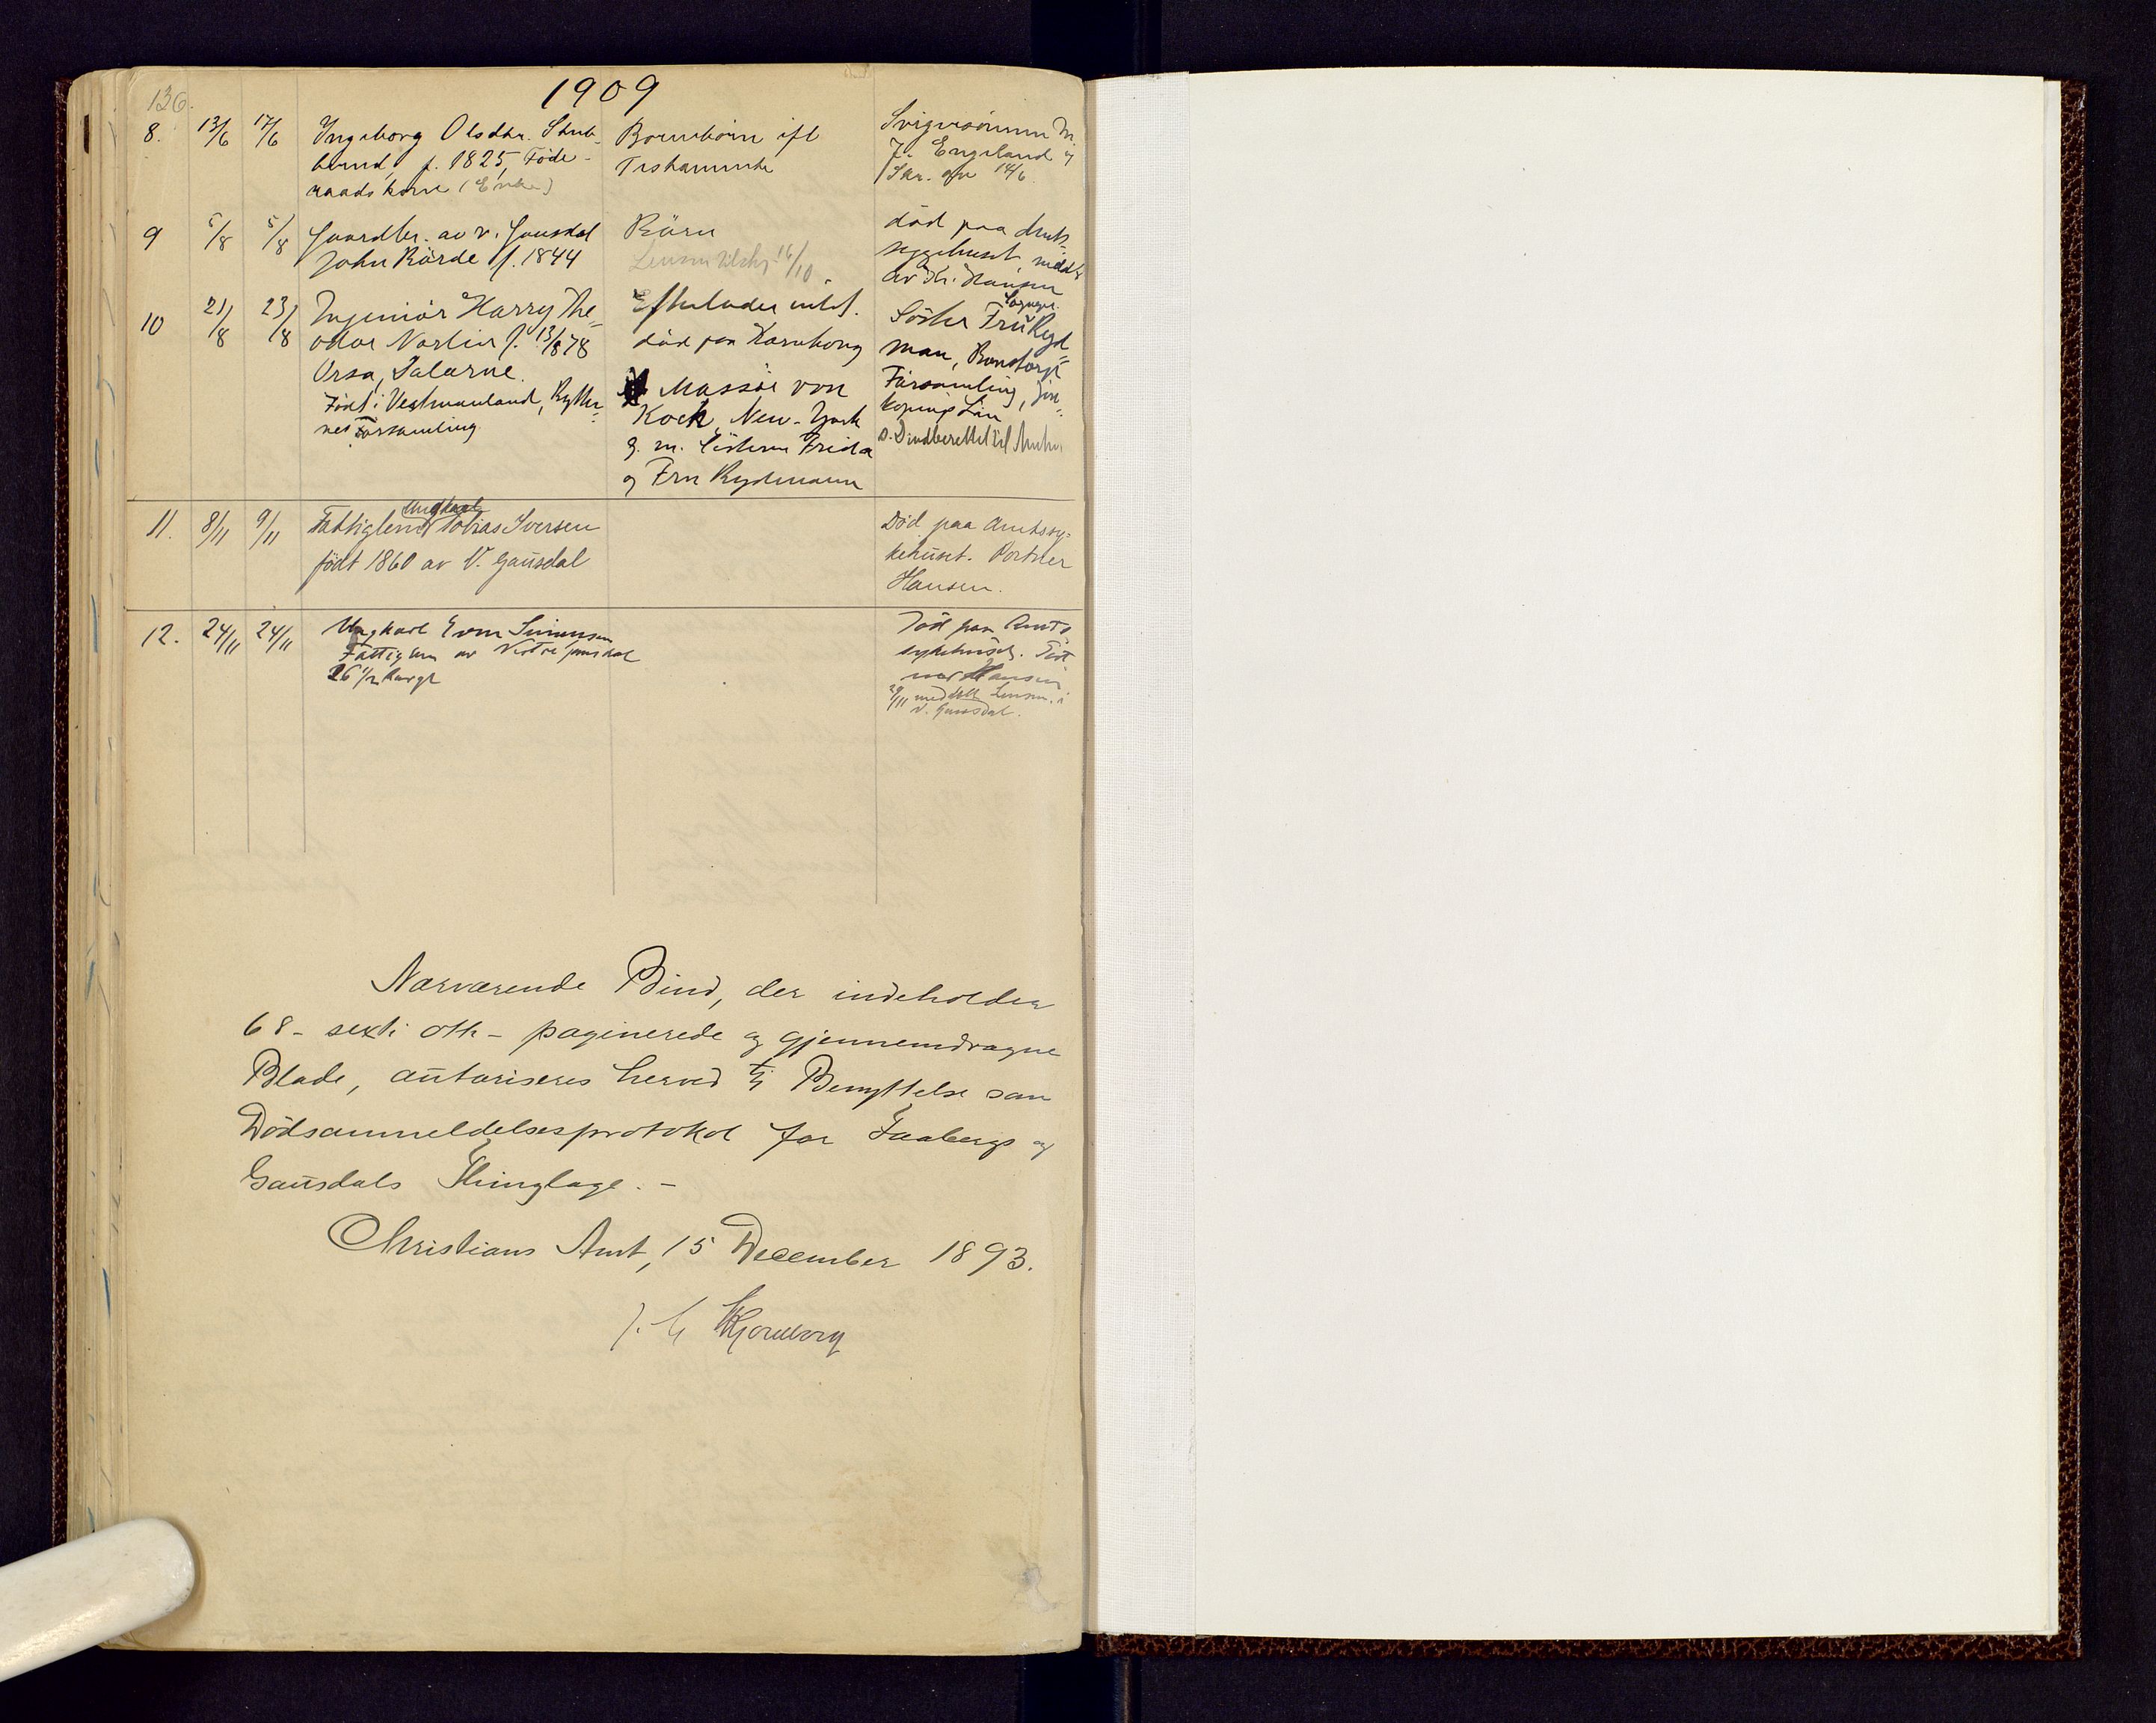 136.
1909
8. 13/6 17/6 Ingeborg Olsdtr. Stub-
berud, f. 1825, Föde-
raadskone (Enke)
Barnebørn ifl
Testamente
Svigersönnen
J. Engeland
Skr. af 14/6.
9 5/8 5/8 Gaardbr. av v. Gausdal
John Rörde f. 1844
Börn
Lensm tilskr. 16/10
död paa Amts-
sygehuset, meddt
av Kr. Hansen
10 21/8 23/8 Ingeniör Harry The-
odor Norlin f. 13/8 78
Orsa, Dalarne.
Födt i Vestmanland, Rytter-
nes Församling
Efterlader intet.
död paa Kornhaug
Massör von
Kock, New-York
g. m. Söstern Frida
og Fru Rydmann
Söster Fru Ryd-
man,
Församling, Jön-
köpings Län
s. Dindberettet til
11. 8/11 9/11 Fattiglem Ungkarl Tobias Iversen
födt 1860 av V. Gausdal
Död paa Amtssy-
kehuset. Portner
Hansen.
12. 24/11 24/11 Ungkarl Even Simensen
Fattiglem av Vestre Gausdal
26 1/2 Aar gl
Död paa Amts
sykehuset. Port
ner Hansen
29/11 meddelt Lensm. i
V. Gausdal.
Nærværende Bind, der indeholder
68 - sexti otte - paginerede og gjennemdragne
Blade, autoriseres herved til Benyttelse som
Dödsanmeldelsesprotokol for Faabergs og
Gausdals Thinglage. -
Christians Amt, 15 December 1893.